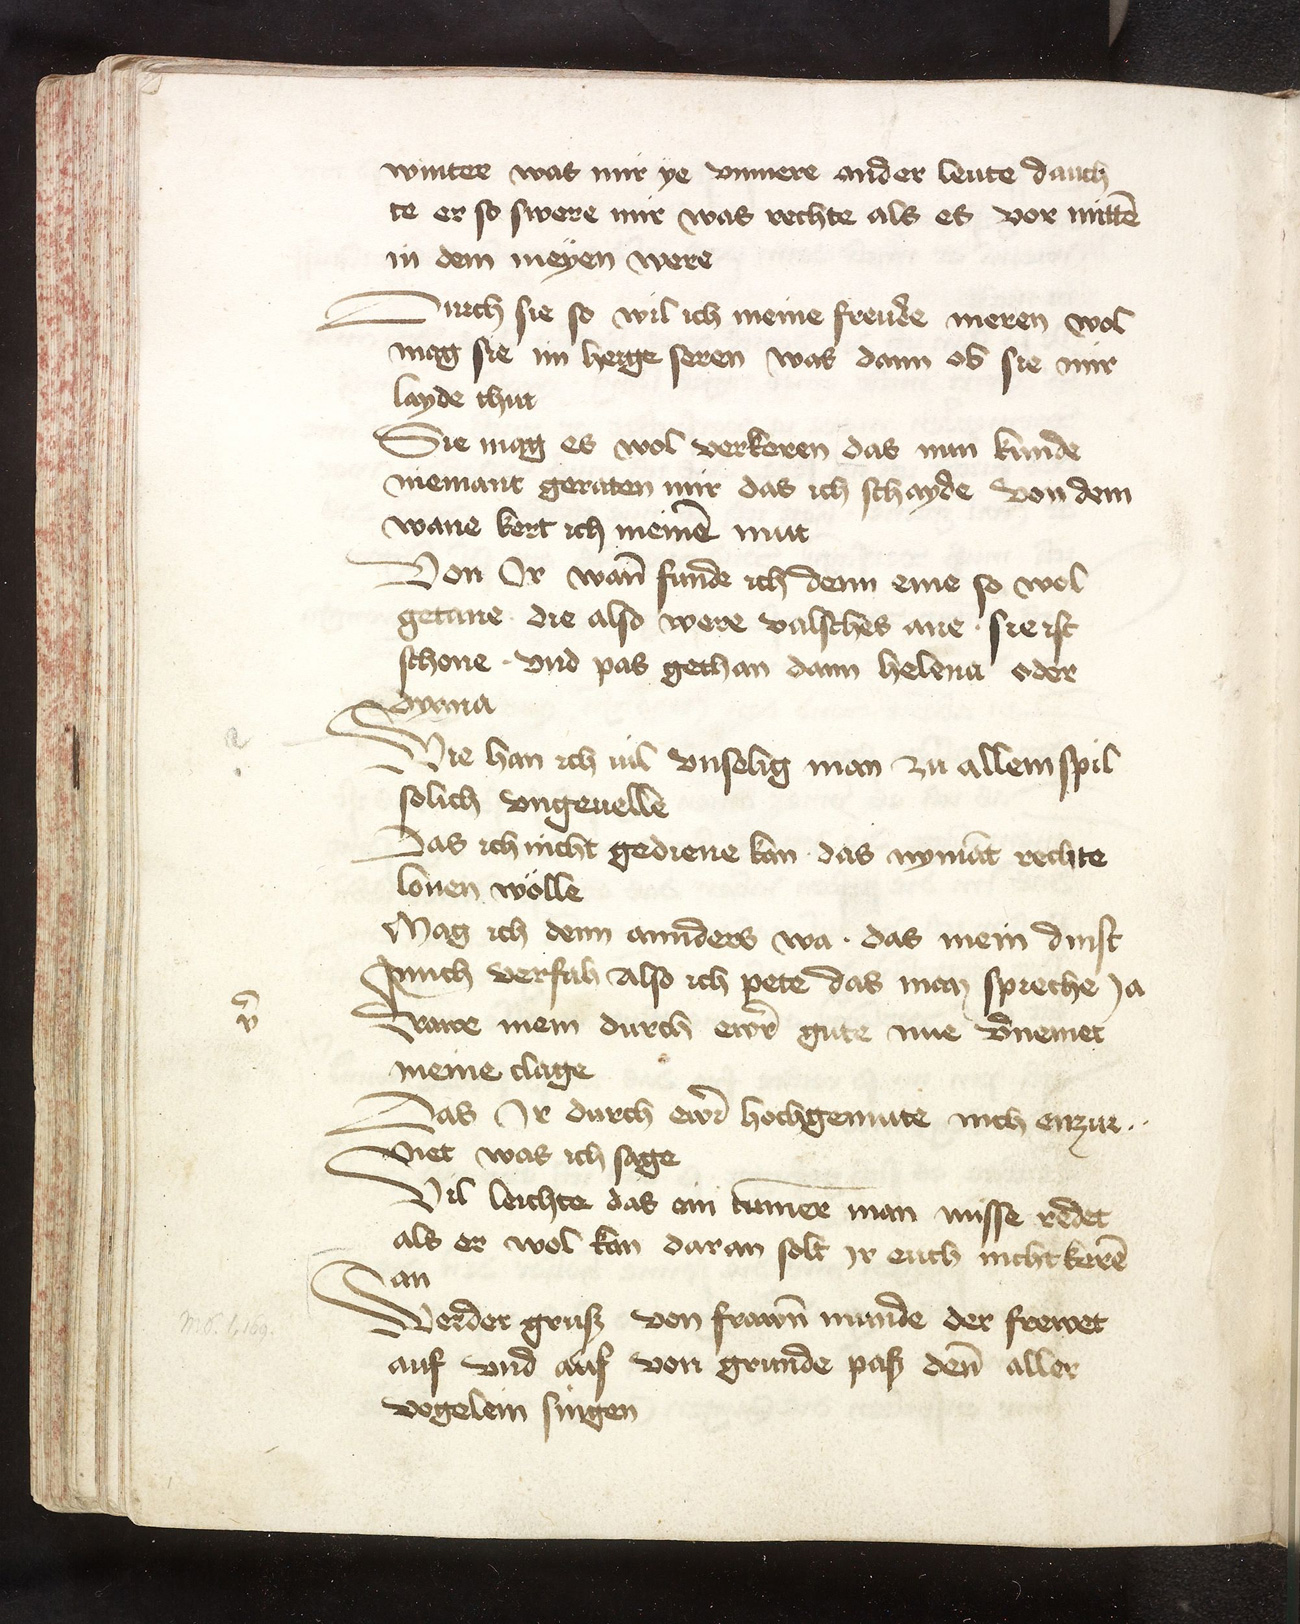 winter was mir ye vnmere ander leute dauch
te er so swere mir was rechte als es vor mittē
in dem meÿen were
Durch sie so wil ich meine freude meren wol
mag sie im herge seren was dann ob sie mir
layde thut
Sie mag es wol verkeren das nun kunde
niemant geraten mir das ich schayde von dem
wane kert ich meinē mut
Von Ir wañ funde ich denn eine so wol
getane · die also were valsches ane · sie ist
schone · vnd pas gethan dann helena oder
dyana
Wie han ich vil vnselig man zu allem spil
solich vngeuelle
Das ich nicht gediene kan · das nymāt rechte
lonen wölle
Mag ich denn annders wa · das mein dinst
mich verfah also ich pete das man spreche Ja
Frawe mein durch ewr̄ gute nue v̄nemet
meine clage
Das Ir durch ewr̄ hochgemute nich enzur··
net was ich sage
Vil leichte das ein tumer man misse redet
als er wol kan daran solt Ir euch nicht kerē
an
Werder gruß von frawn̄ munde der frewet
auf vnd auf von grunde paß den̄ aller
vogelein singen
v̄